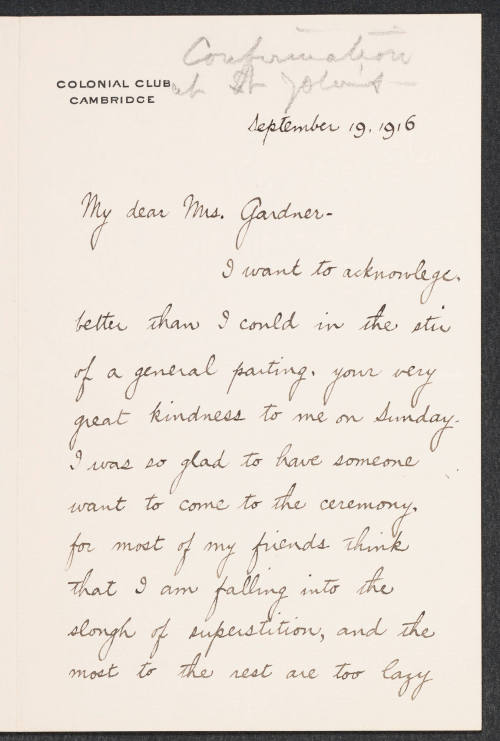 Confirmation
at St John's
COLONIAL CLUB
CAMBRIDGE
September 19, 1916
My dear Mrs. Gardner-
I want to acknowlege,
better than I could in the stir
of a general parting, your very
great kindness to me on Sunday.
I was so glad to have someone
want to come to the ceremony,
for most of my friends think
that I am falling into the
slough of superstition, and the
most to the rest are too lazy